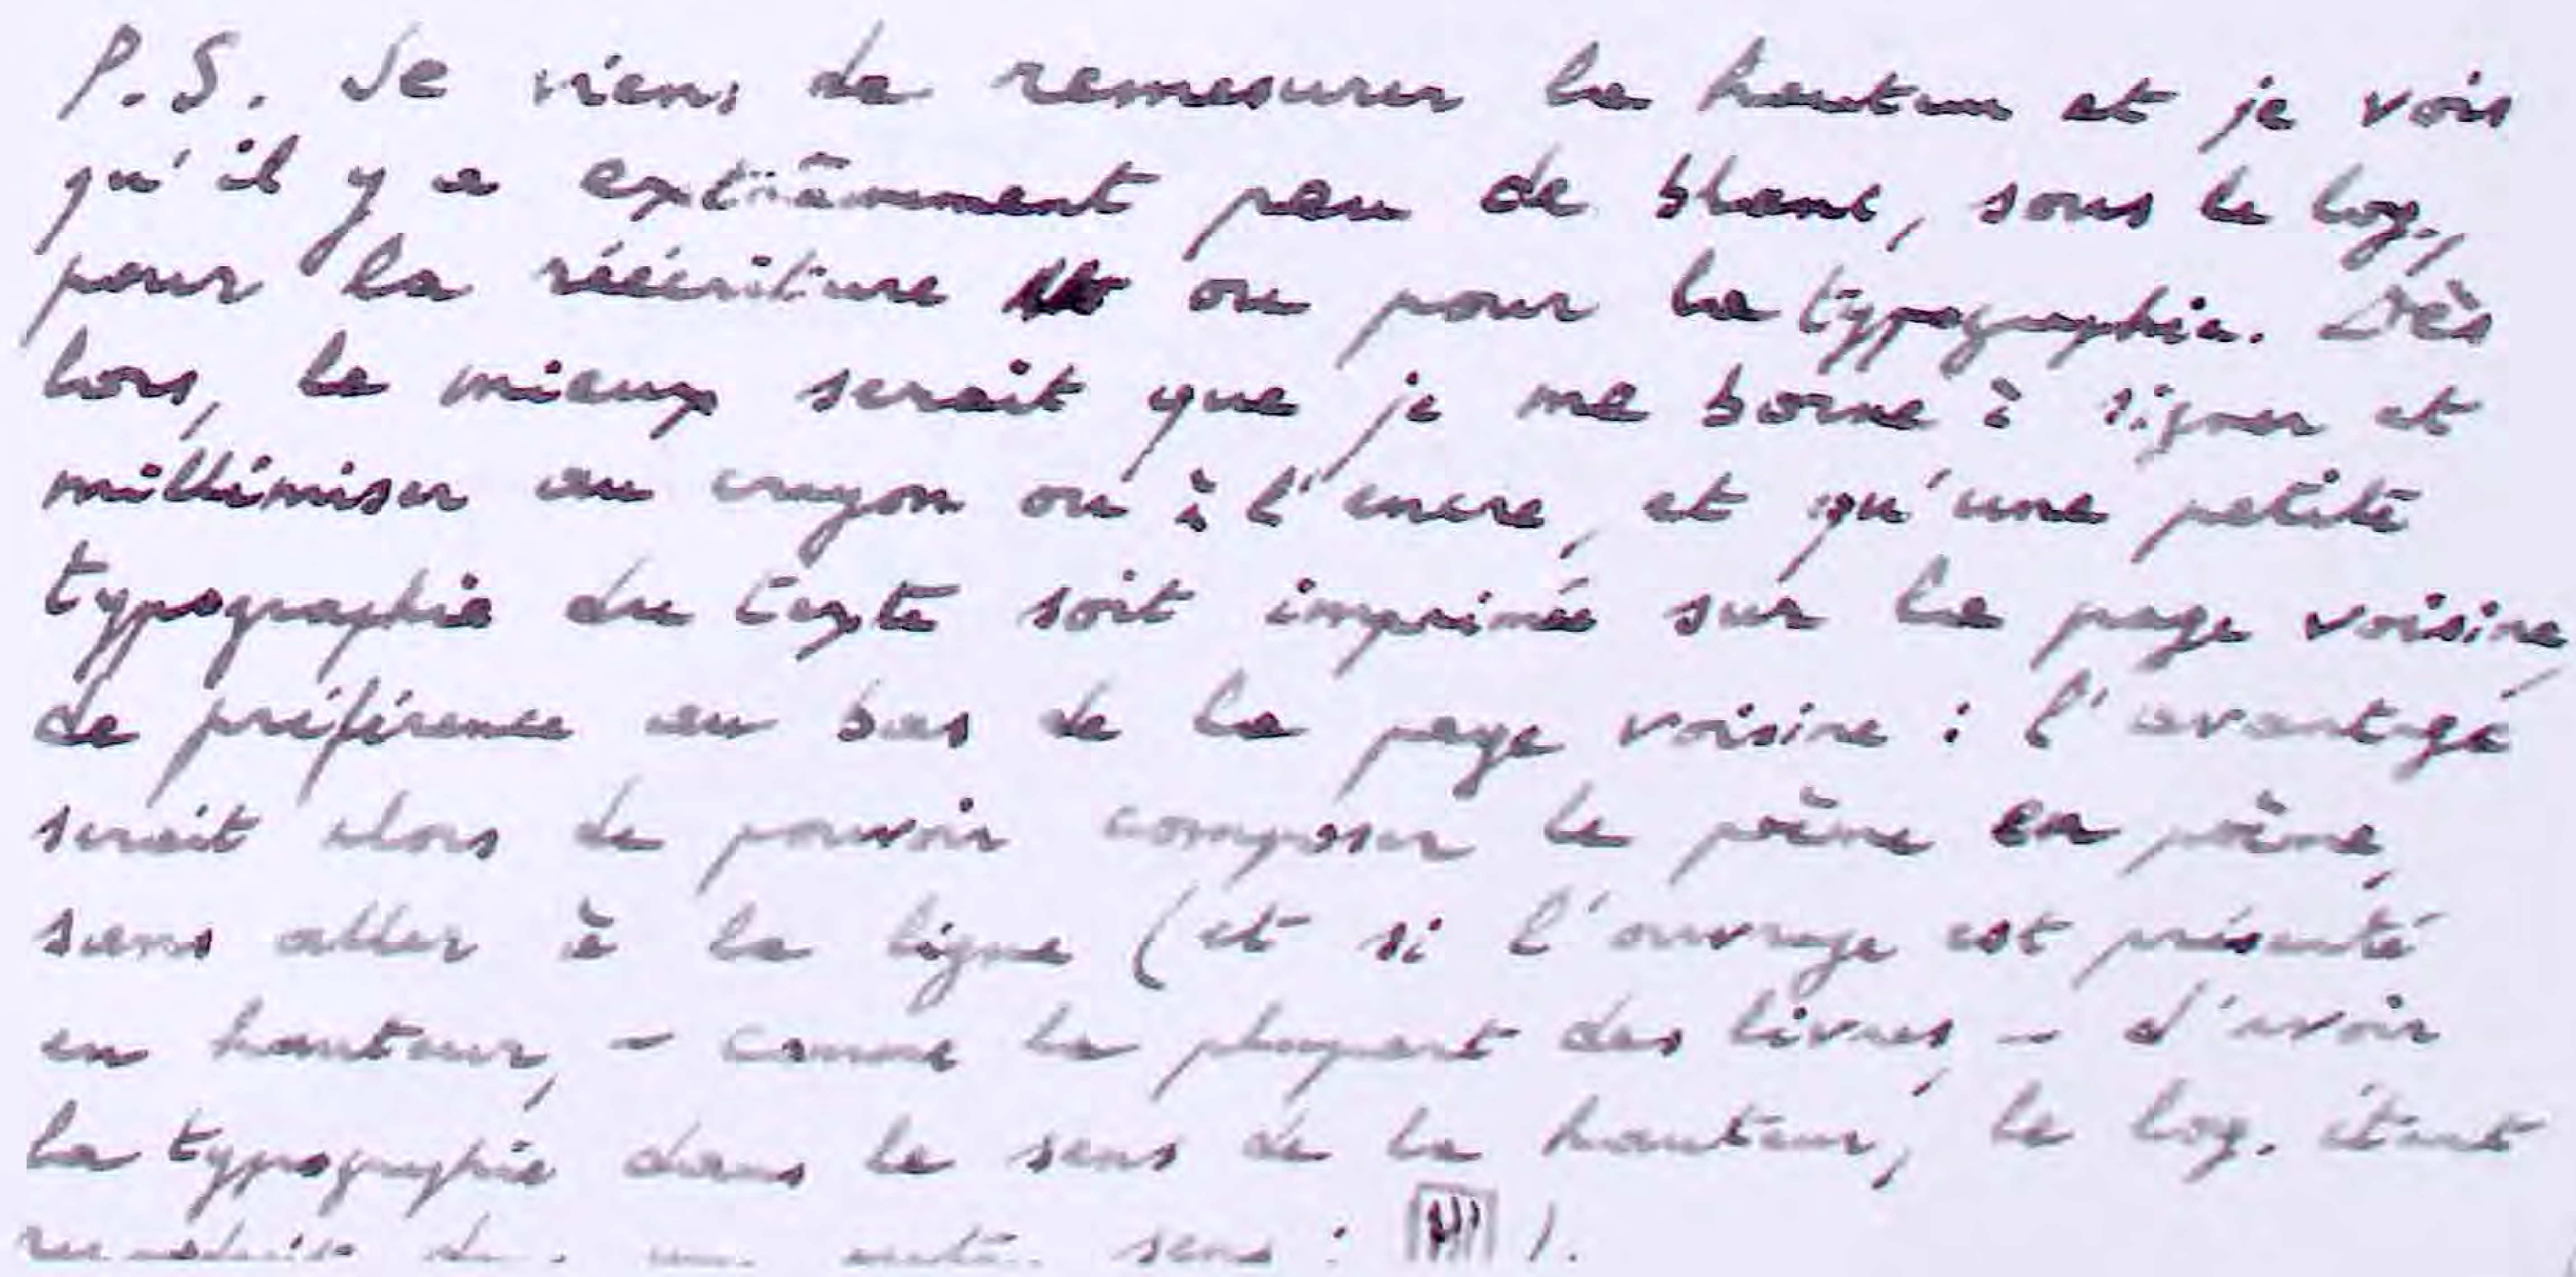 P.S. Je viens de remesurer la hauteur et je vois
qu'il y a extrêmement peu de blanc, sous le log.,
pour la réécriture ou pour la typographie. Dès
lors, le mieux serait que je me borne à signer et
millimiser au crayon ou à l'encre, et qu'une petite
typographie du texte soit imprimée sur la page voisine,
de préférence au bas de la page voisine : l'avantage
serait alors de pouvoir composer le poème en poème,
sans aller à la ligne (et si l'ouvrage est présenté
en hauteur, – comme la plupart des livres, – d'avoir
la typographie dans le sens de la hauteur, le log. étant
sens : ).